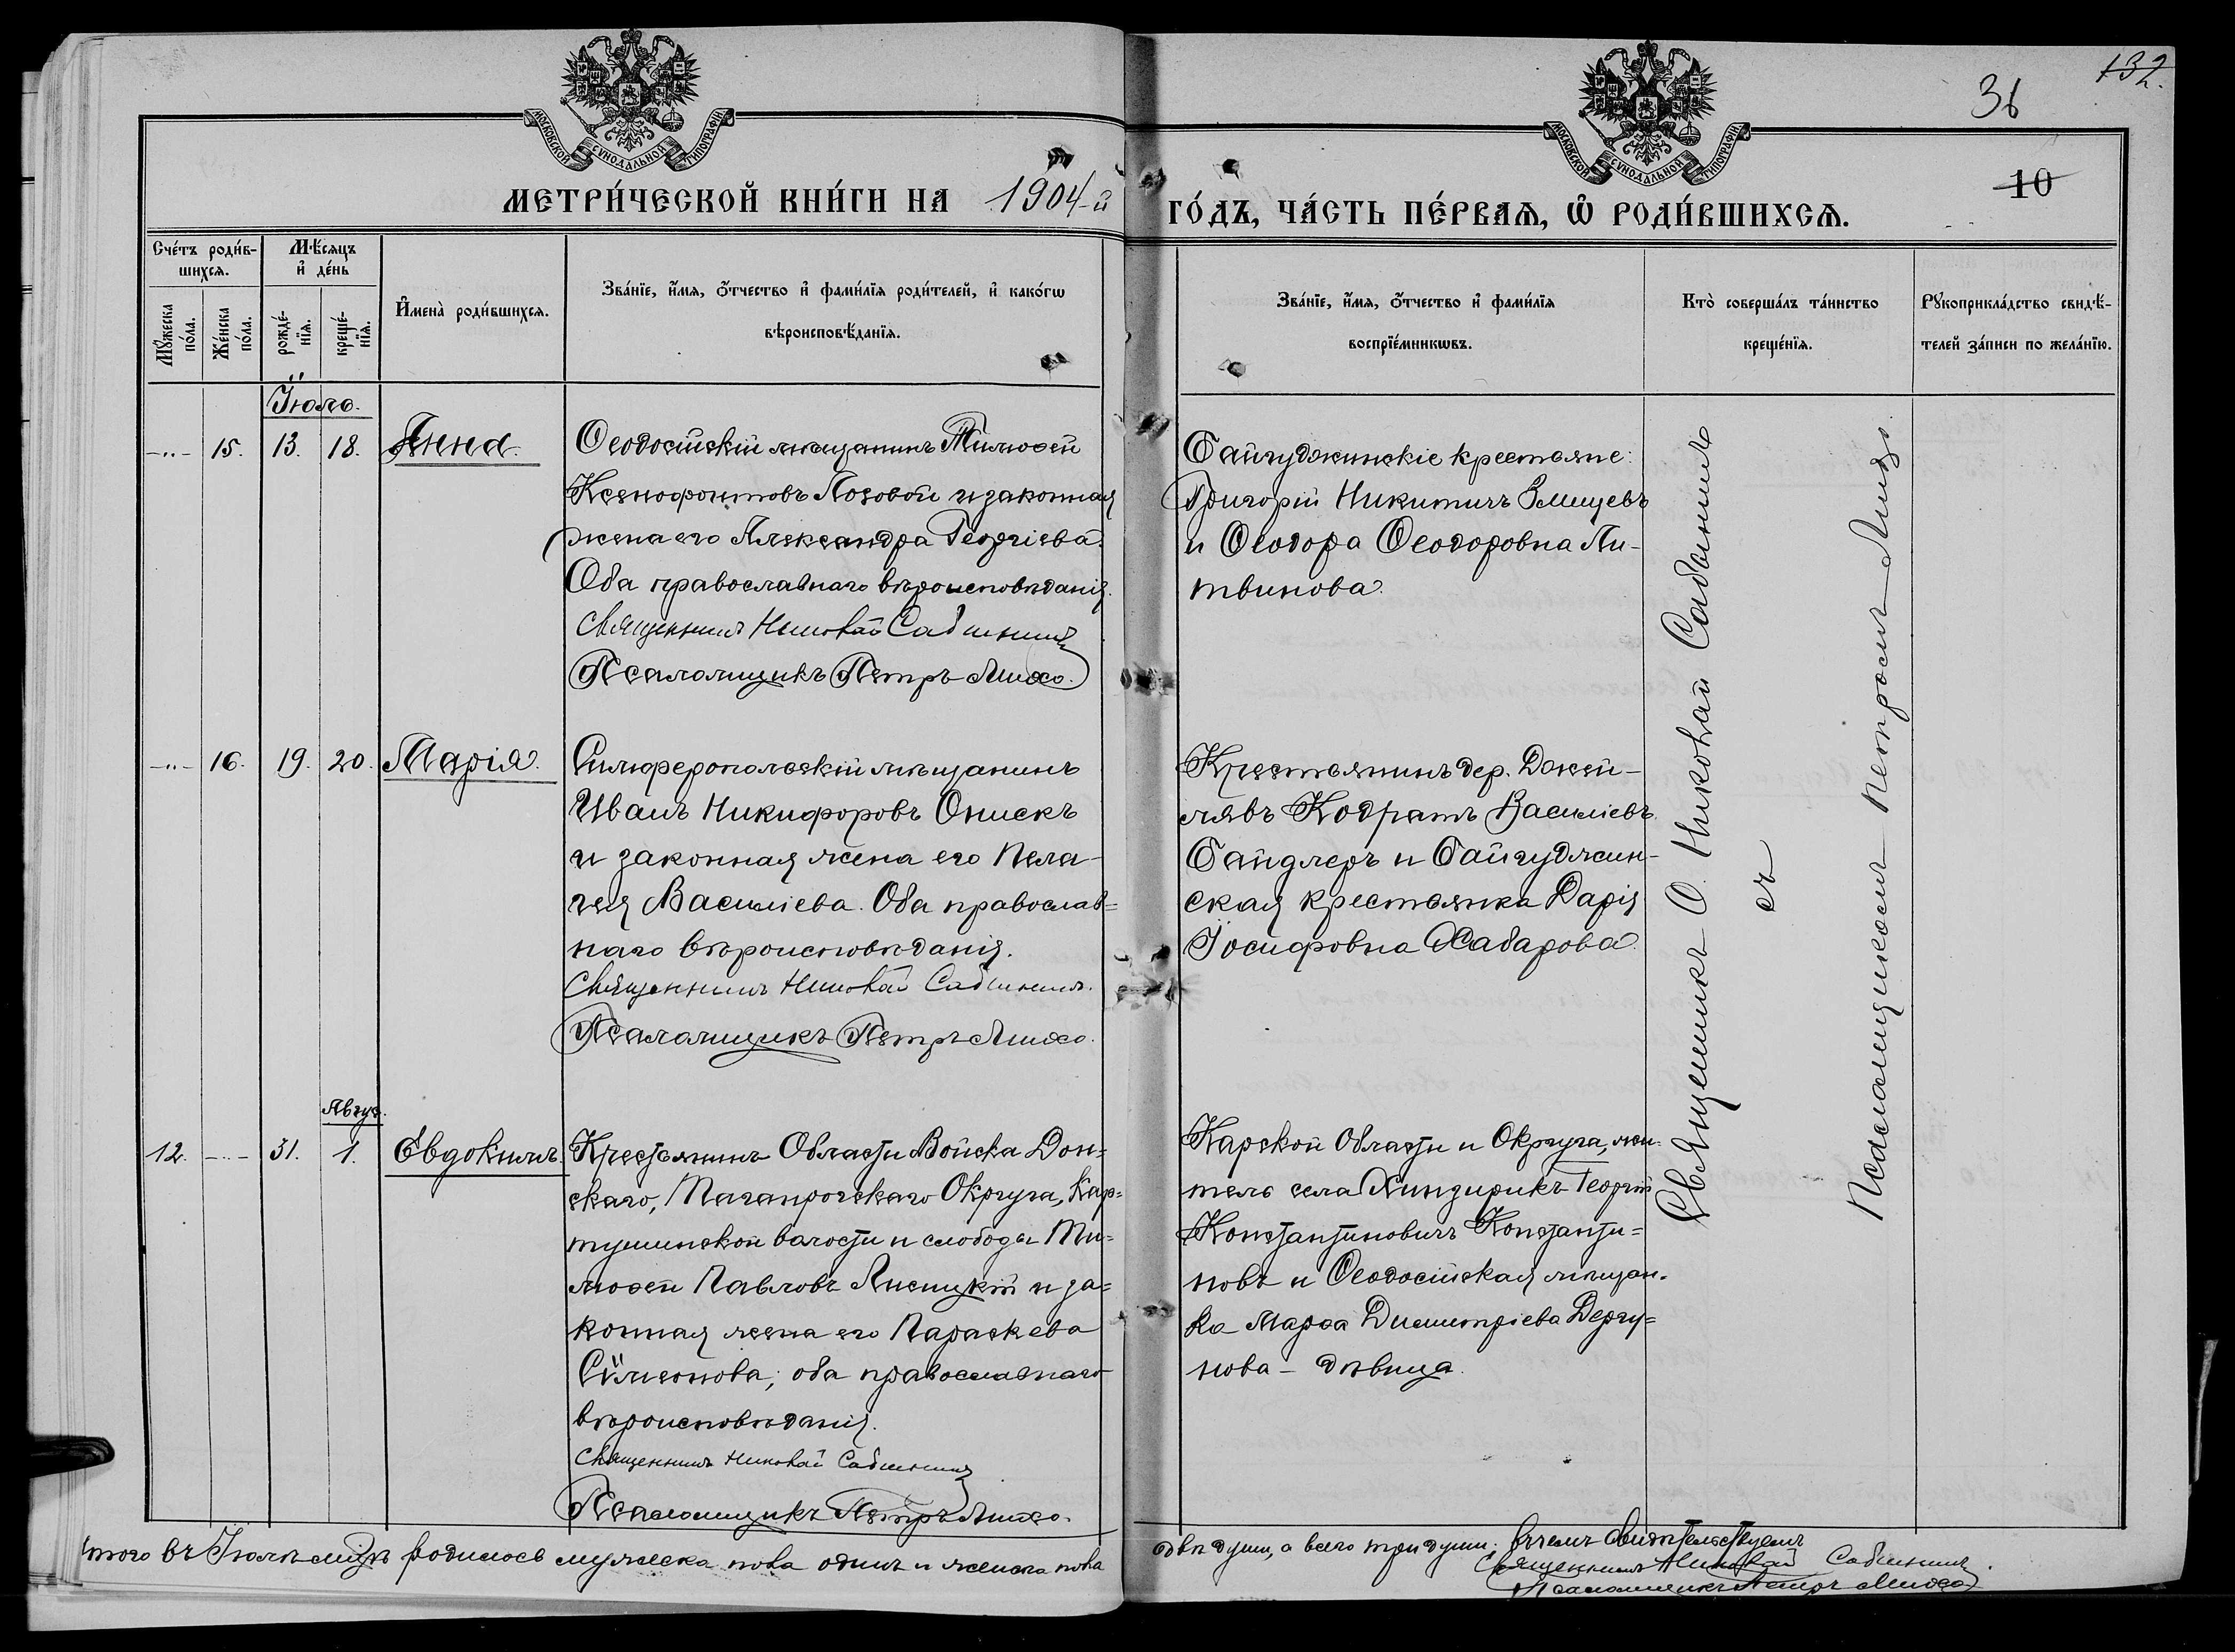 МОСКОВСКОЙ СУНОДАЛЬНОЙ ТИПОГРАФІИ
МОСКОВСКОЙ СУНОДАЛЬНОЙ ТИПОГРАФІИ
132.
36
10
МЕТРИ́ЧЕСКОЙ КНИ́ГИ НА 1904-й
ГО́ДЪ, ЧА́СТЬ ПЕ́РВАѦ, Ѡ҆ РОДИ́ВШИХСѦ.
Сче́тъ роди́в-
шихсѧ.
Мꙋ́жеска по́ла.
Же́нска по́ла.
Мѣ́сѧцъ
и҆ де́нь
рожде́-
нїѧ.
креще́-
нїѧ.
И҆мена̀ роди́вшихсѧ.
Зва́нїе, и҆́мѧ, ѻ҆́тчество и҆ фами́лїѧ роди́телей, и҆ како́гѡ
вѣроисповѣ́данїѧ.
Зва́нїе, и҆́мѧ, ѻ҆́тчество и҆ фами́лїѧ
воспрїе́мникѡвъ.
Кто̀ соверша́лъ та́инство
креще́нїѧ.
Рꙋкоприкла́дство свидѣ́-
телей за́писи по жела́нїю.
Іюль.
-"- 15. 13. 18. Анна.
Ѳеодосійскій мѣщанинъ Тимоѳей
Ксенофонтовъ Лозовой и законная
жена его Александра Георгіева.
Оба православнаго вѣроисповѣданія.
Священникъ Николай Сабининъ
Псаломщикъ Петръ Лихо.
Байгуджинскіе крестьяне:
Григорій Никитичъ Змицевъ
и Ѳеодора Ѳеодоровна Ли-
твинова.
-"- 16. 19. 20. Марія.
Симферопольскій мѣщанинъ
Иванъ Никифоровъ Онискъ
и законная жена его Пела-
гея Василіева. Оба православ=
наго вѣроисповѣданія.
Священникъ Николай Сабининъ.
Псаломщикъ Петръ Лихо.
Крестьянинъ дер. Джей-
лявъ Кодратъ Василіевъ
Байдлеръ и Байгуджин-
ская крестьянка Дарія
Іосифовна Хабарова.
Авгус.
12. -"- 31. 1. Евдокимъ
Крестьянинъ Области Войска Дон=
скаго, Таганрогскаго Округа, Кар=
тушинской волости и слободы Ти=
моѳей Павловъ Лисицкій и за=
конная жена его Параскева
Сѵмеонова; оба православнаго
вѣроисповѣданія.
Священникъ Николай Сабининъ
Псаломщикъ Петръ Лихо.
Карской Области и Округа, жи-
тель села Хиндирикъ Георгій
Константиновичъ Константи=
новъ и Ѳеодосійская мѣщан-
ка Марѳа Димитріева Дергу=
нова - дѣвица.
Священникъ О. Николай Сабининъ
съ
Псаломщикомъ Петромъ Лихо.
Итого въ Іюлѣ мѣцѣ родилось мужеска пола одинъ и женска пола
двѣ души, а всего три души; въ чемъ свидѣтельствуемъ
Священникъ Николай Сабининъ.
Псаломщикъ Петръ Лихо